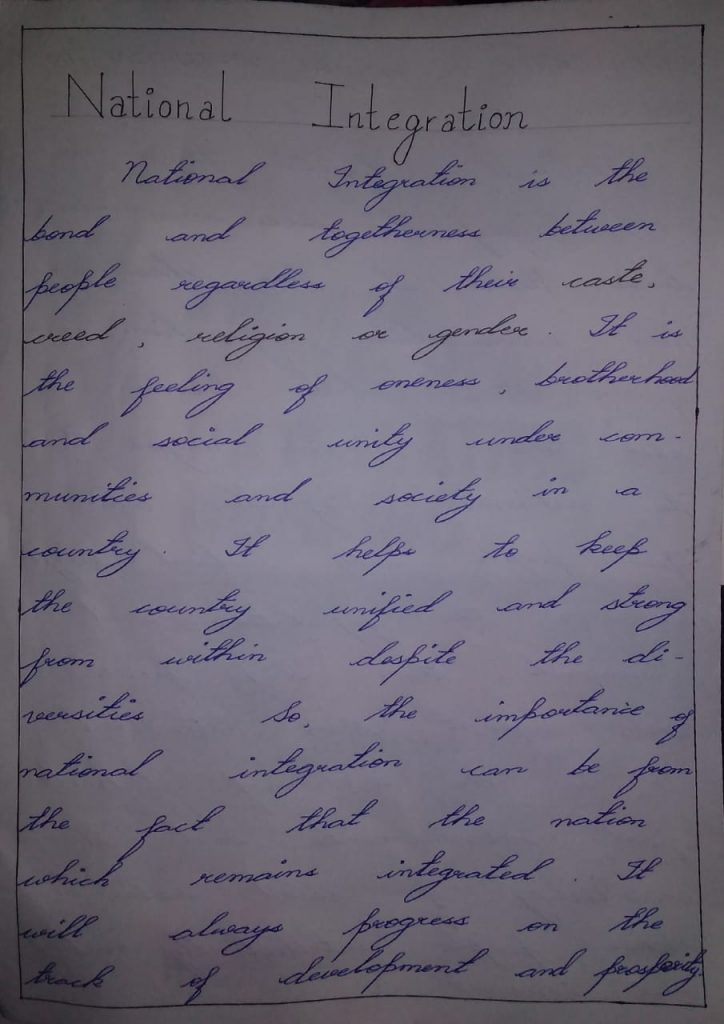 National Integration
National Integration is the
bond and togetherness between
people regardless of their caste,
creed, religion or gender. It is
the feeling of oneness, brotherhood
and social unity under com-
munities and society in a
country. It helps to keep
the country unified and strong
from within despite the di-
versities So, the importance of
national integration can be from
the fact that the nation
which remains integrated. It
will always progress on the
track of development and prosperity.